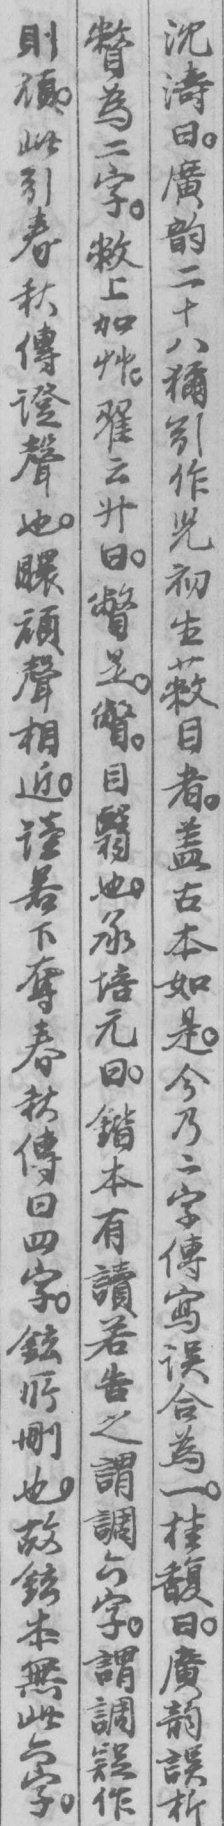 沈濤曰。廣韵二十八獮引作兒初生蔽目者。蓋古本如是。今乃二字傳寫误合為一。桂馥曰。廣韵誤析
瞥為二字。敝上加艸。翟云升曰。瞥是。瞥。目翳也。承培元曰。鍇本有讀若告之謂調六字。謂調疑作
則頑。此引春秋傳證聲也。瞁頑聲相近。讀若下奪春秋傳曰四字。鉉所刪也。故鉉本無此六字。